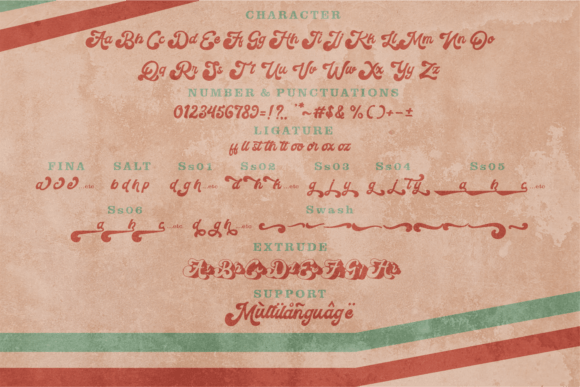 CHARACTER
Aa Bb Cc Dd Ee Ff Gg Hh Ii Jj Kk Ll Mm Nn Oo
Qq Rr Ss Tt Uu Vv Ww Xx Yy Zz
NUMBER & PUNCTUATIONS
0123456789=!?.. ~#$& %()+-±
LIGATURE
ff ll st th tt ov or ox oz
FINA SALT Ss01 Ss02 Ss03 Ss04 Ss05
b d h p d g h a h c
Ss06 Swash
a h c d g h
EXTRUDE
A B C D E F G H
SUPPORT
Mùltïlåñguâgë